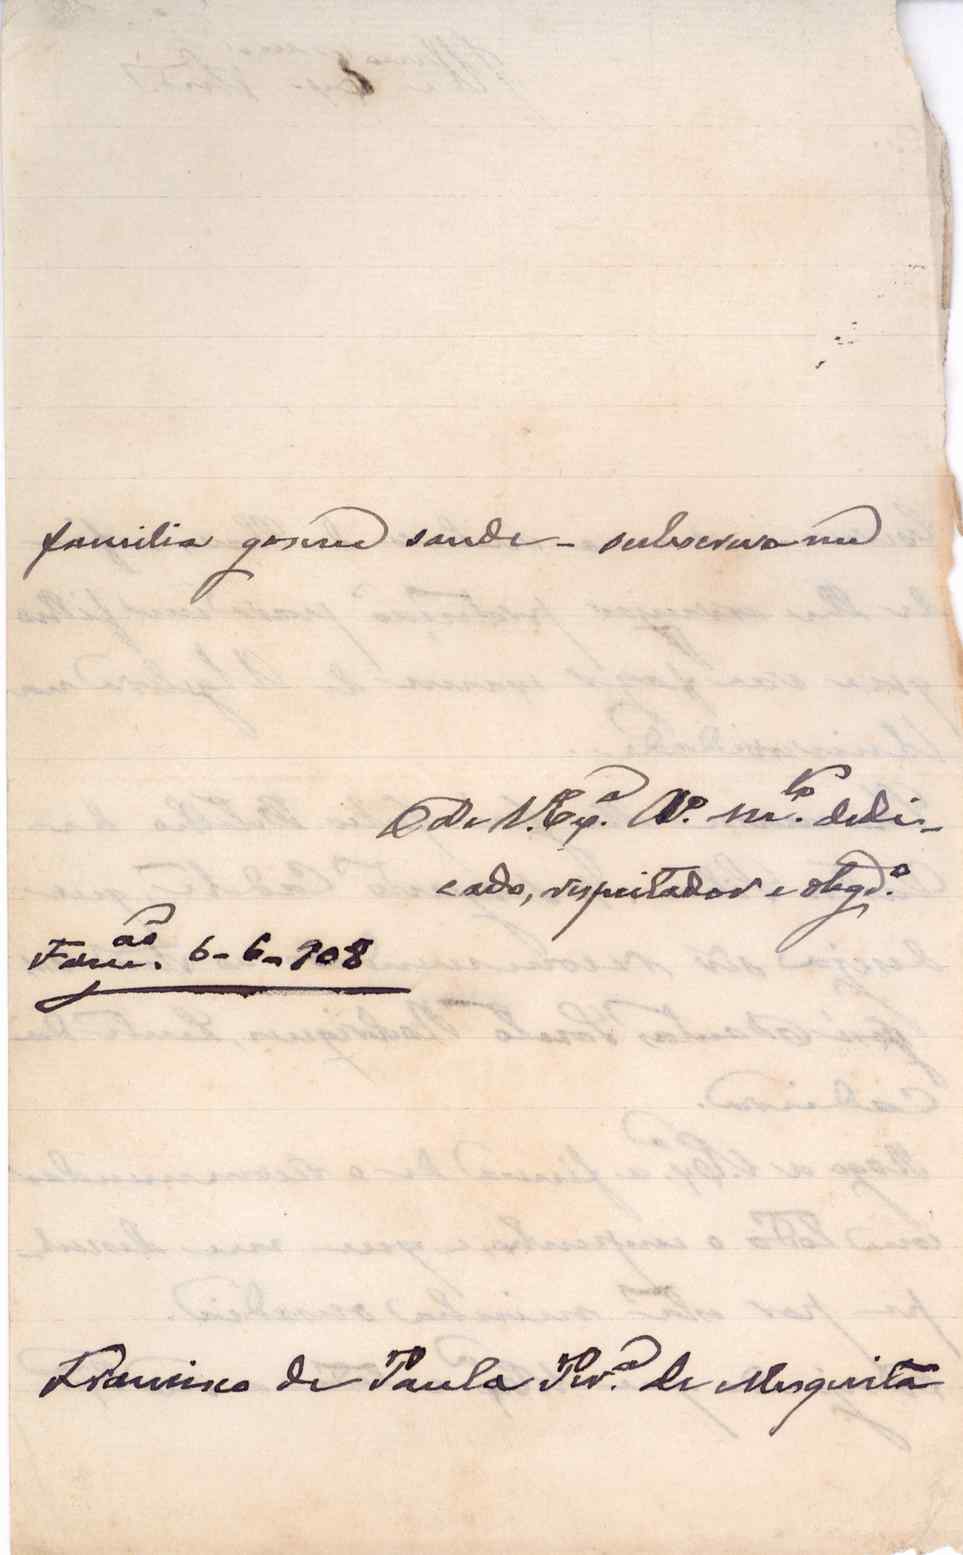 familia gosem saude - subscrevo me
De V. Exª. Aº. mtº. dedi-
cado, respeitador e obgdº.
Famcão. 6-6-908
Francisco de Paula Perª. de Mesquita